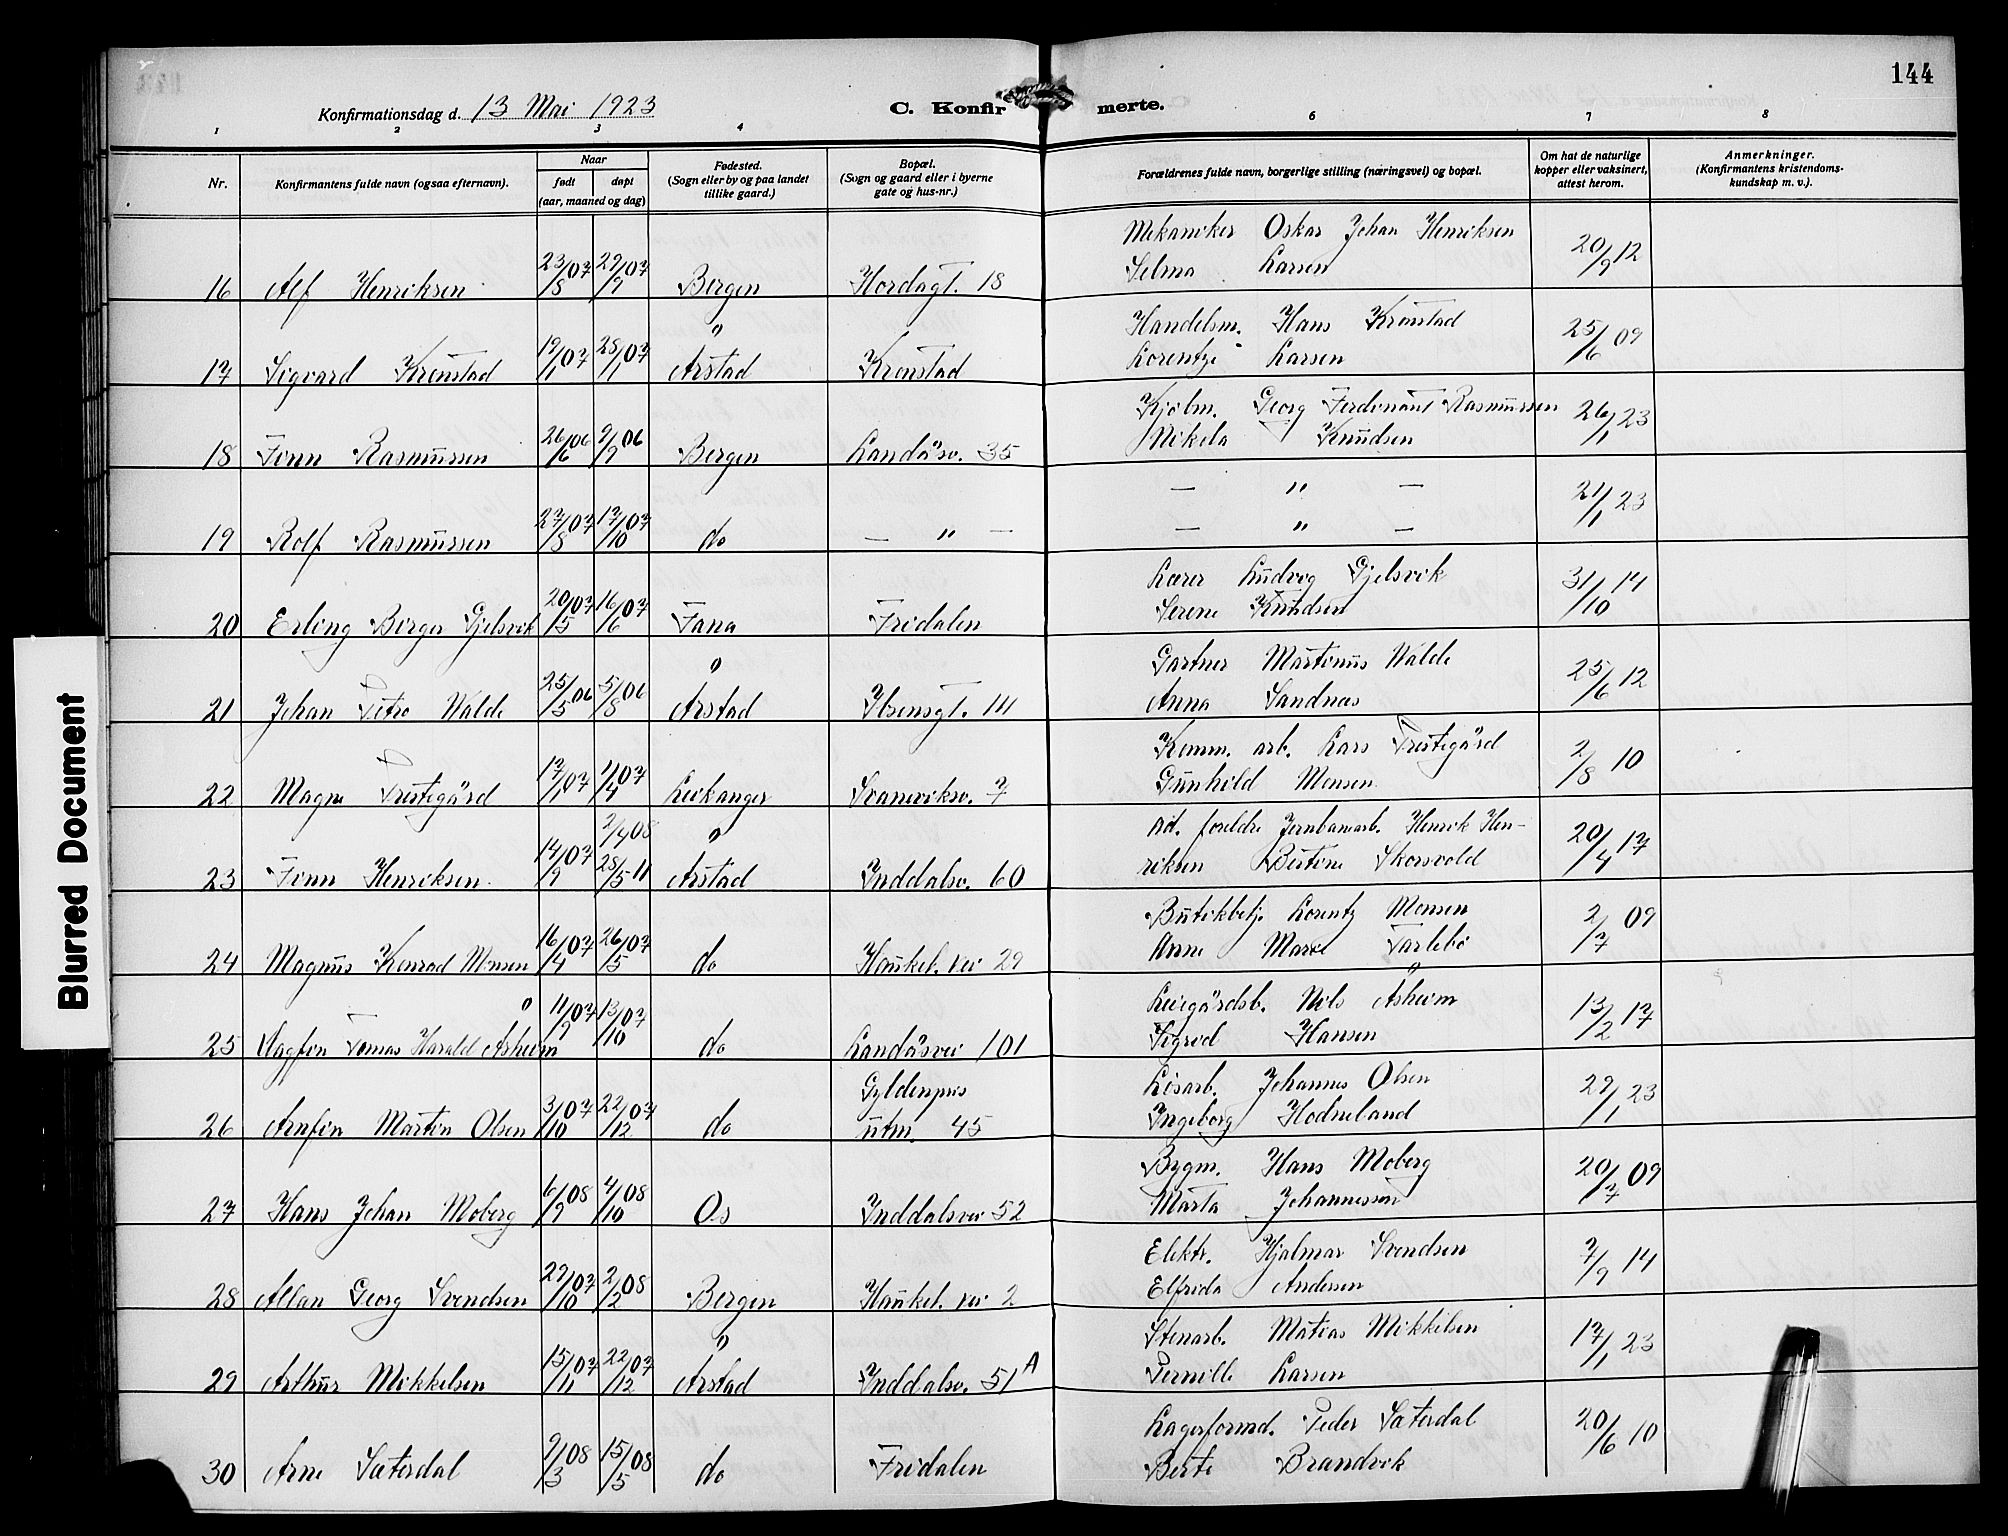 144
Konfirmationsdag d. 13 Mai 1923
C. Konfirmerte.
1 2 3 4 6 7 8
Nr.
Konfirmantens fulde navn (ogsaa efternavn).
Naar
født døpt
(aar, maaned og dag)
Fødested.
(Sogn eller by og paa landet
tillike gaard.)
Bopæl.
(Sogn og gaard eller i byerne
gate og hus-nr.)
Forældrenes fulde navn, borgerlige stilling (næringsvei) og bopæl.
Om hat de naturlige
kopper eller vaksinert,
attest herom.
Anmerkninger.
(Konfirmantens kristendoms-
kundskap m. v.).
Mekaniker Oskar Johan Henriksen
16 Alf Henriksen 23/8 07 29/9 07 Bergen Hordagt. 18 Selma Larsen 20/9 12
Handelsm. Hans Kronstad
17 Sigvard Kronstad 19/1 07 28/1 07 Årstad Kronstad Lorentze Larsen 25/6 09
Kjølm. Georg Ferdinant Rasmussen
18 Finn Rasmussen 26/6 06 9/9 06 Bergen Landåsv. 35 Mikela Knudsen 26/1 23
— " —
19 Rolf Rasmussen 27/8 07 17/10 07 do — " — — " — 21/1 23
Lærer Ludvig Gjelsvik
20 Erling Berger Gjelsvik 20/5 07 16/6 07 Fana Fridalen Serene Knudsen 31/10 14
Gartner Martinus Walde
21 Johan Petro Walde 25/5 06 5/8 06 Årstad Ibsensgt. 14 Anna Sandnæs 25/6 12
Komm. arb. Lars Prestegård
22 Magne Prestegård 17/1 07 1/4 07 Leikanger Svaneviksv. 7 Gunhild Monsen 2/8 10
Ad. foreldre Jernbanearb. Henrik Hen-
23 Finn Henriksen 14/9 07 2/4 08 28/5 11 Årstad Inddalsv. 60 riksen Bertine Skorsvold 20/4 17
Butikbetj. Lorentz Monsen
24 Magnus Konrad Monsen 16/4 07 26/5 07 do Haukel. vei 29 Anne Marie Tarlebø 2/7 09
Leiegårdsb. Nils Åsheim
25 Dagfin Tomas Harald Åsheim 11/9 07 13/10 07 do Landåsvei 101 Sigrid Hansen 13/2 17
Gyldenpris
Løsarb. Johannes Olsen
26 Arnfin Martin Olsen 3/10 07 22/12 07 do utm. 45 Ingeborg Hodneland 29/1 23
Bygm. Hans Moberg
27 Hans Johan Moberg 6/9 08 4/10 08 Os Inddalsvei 52 Marta Johannessen 20/7 09
Elektr. Hjalmar Svendsen
28 Allan Georg Svendsen 29/10 07 2/2 08 Bergen Haukel. vei 2 Elfrida Andersen 7/9 14
Stenarb. Matias Mikkelsen
29 Arthur Mikkelsen 15/11 07 22/12 07 Årstad Inddalsv. 51 A Pernille Larsen 17/1 23
Lagerformd. Peder Sæterdal
30 Arne Sæterdal 9/3 08 15/5 08 do Fridalen Berte Brandvik 20/6 10
Blurred Document